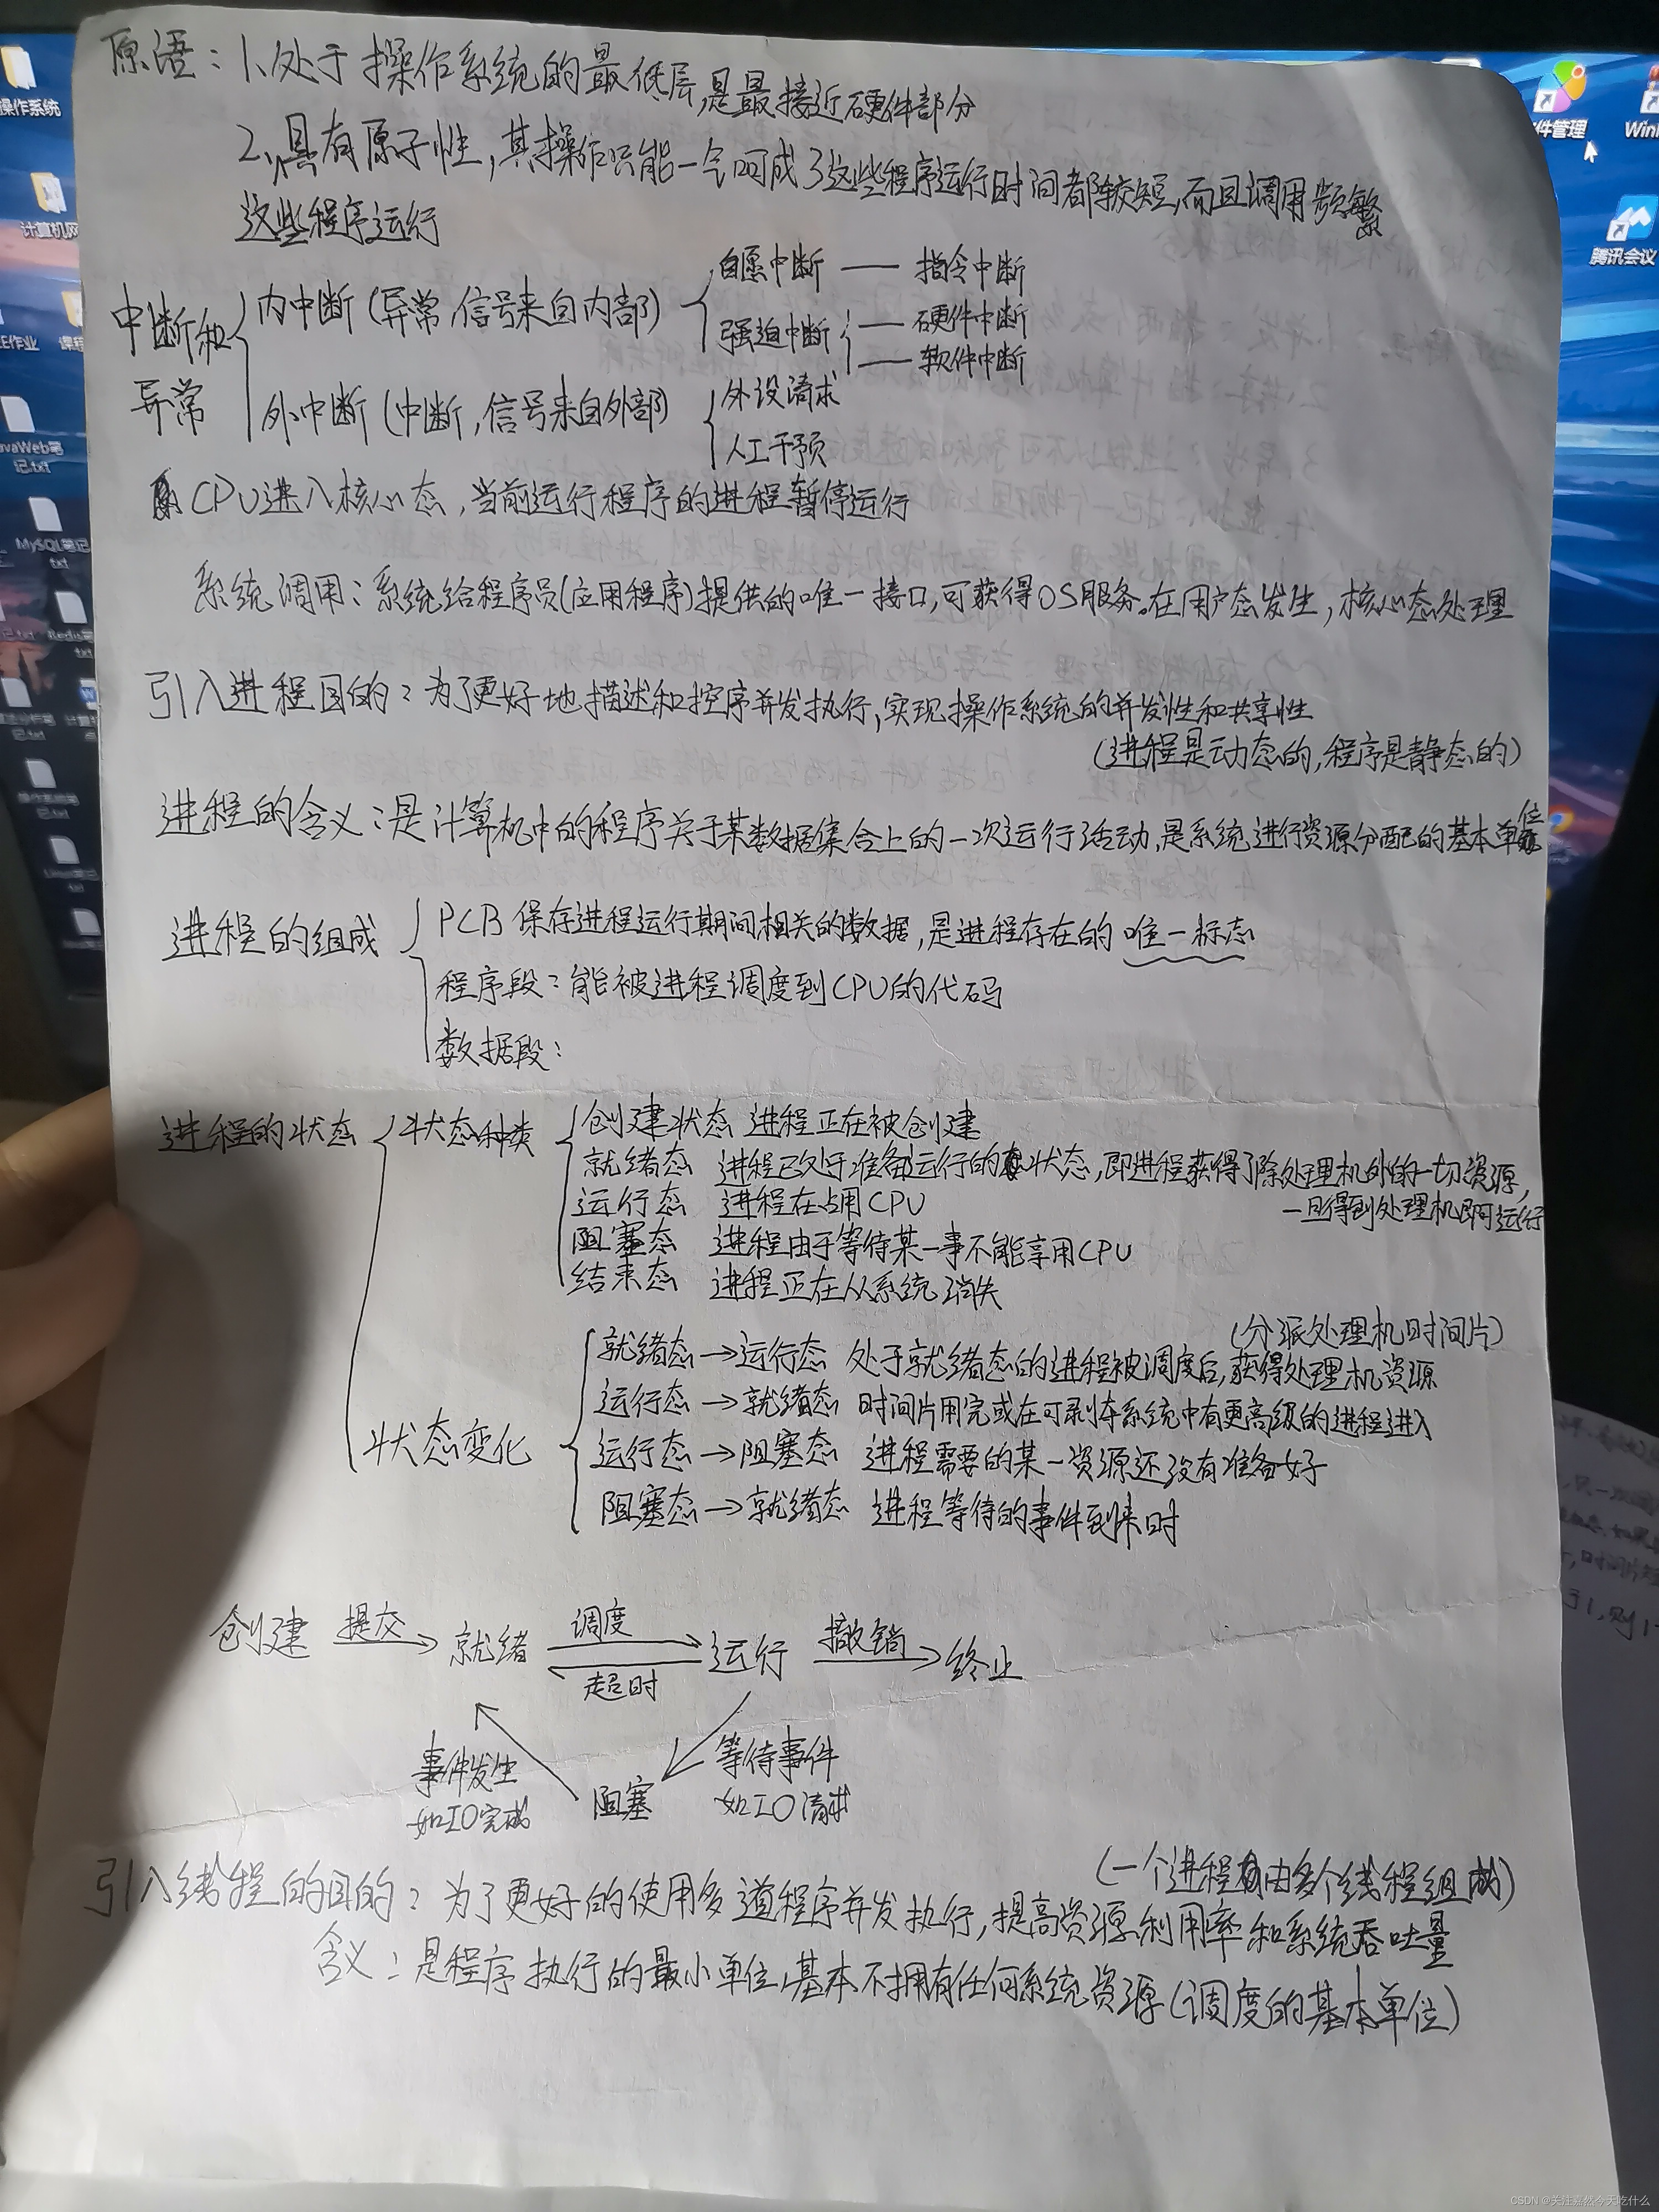 原语：1、处于操作系统的最低层,是最接近硬件部分
2、具有原子性,其操作只能一气呵成 3这些程序运行时间都较短,而且调用频繁
这些程序运行
中断和异常
内中断(异常,信号来自内部)
自愿中断 —— 指令中断
强迫中断 —— 硬件中断
—— 软件中断
外中断(中断,信号来自外部)
外设请求
人工干预
CPU进入核心态,当前运行程序的进程暂停运行
系统调用：系统给程序员(应用程序)提供的唯一接口,可获得OS服务。在用户态发生,核心态处理
引入进程目的：为了更好地描述和控序并发执行,实现操作系统的并发性和共享性
(进程是动态的,程序是静态的)
进程的含义：是计算机中的程序关于某数据集合上的一次运行活动,是系统进行资源分配的基本单位
进程的组成
PCB 保存进程运行期间相关的数据,是进程存在的唯一标态
程序段：能被进程调度到CPU的代码
数据段：
进程的状态
状态种类
创建状态 进程正在被创建
就绪态 进程已处于准备运行的状态,即进程获得了除处理机外的一切资源,
一旦得到处理机即可运行
运行态 进程在占用CPU
阻塞态 进程由于等待某一事不能享用CPU
结束态 进程正在从系统消失
状态变化
(分派处理机时间片)
就绪态→运行态 处于就绪态的进程被调度后,获得处理机资源
运行态→就绪态 时间片用完或在可剥夺系统中有更高级的进程进入
运行态→阻塞态 进程需要的某一资源还没有准备好
阻塞态→就绪态 进程等待的事件到来时
创建 提交 就绪 调度 运行 撤销 终止
超时
事件发生
如IO完成
阻塞
等待事件
如IO请求
(一个进程由多个线程组成)
引入线程的目的：为了更好的使用多道程序并发执行,提高资源利用率和系统吞吐量
含义：是程序执行的最小单位,基本不拥有任何系统资源(调度的基本单位)
操作系统
计算机网
E作业
课程
avaWeb笔
记.txt
MySQL笔记
txt
Redis笔
件管理
Win
腾讯会议
CSDN @关注嘉然今天吃什么